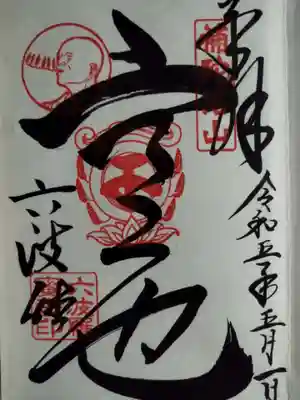 奉拝
令和五年五月一日
補陀洛山
空也
六波
六波羅